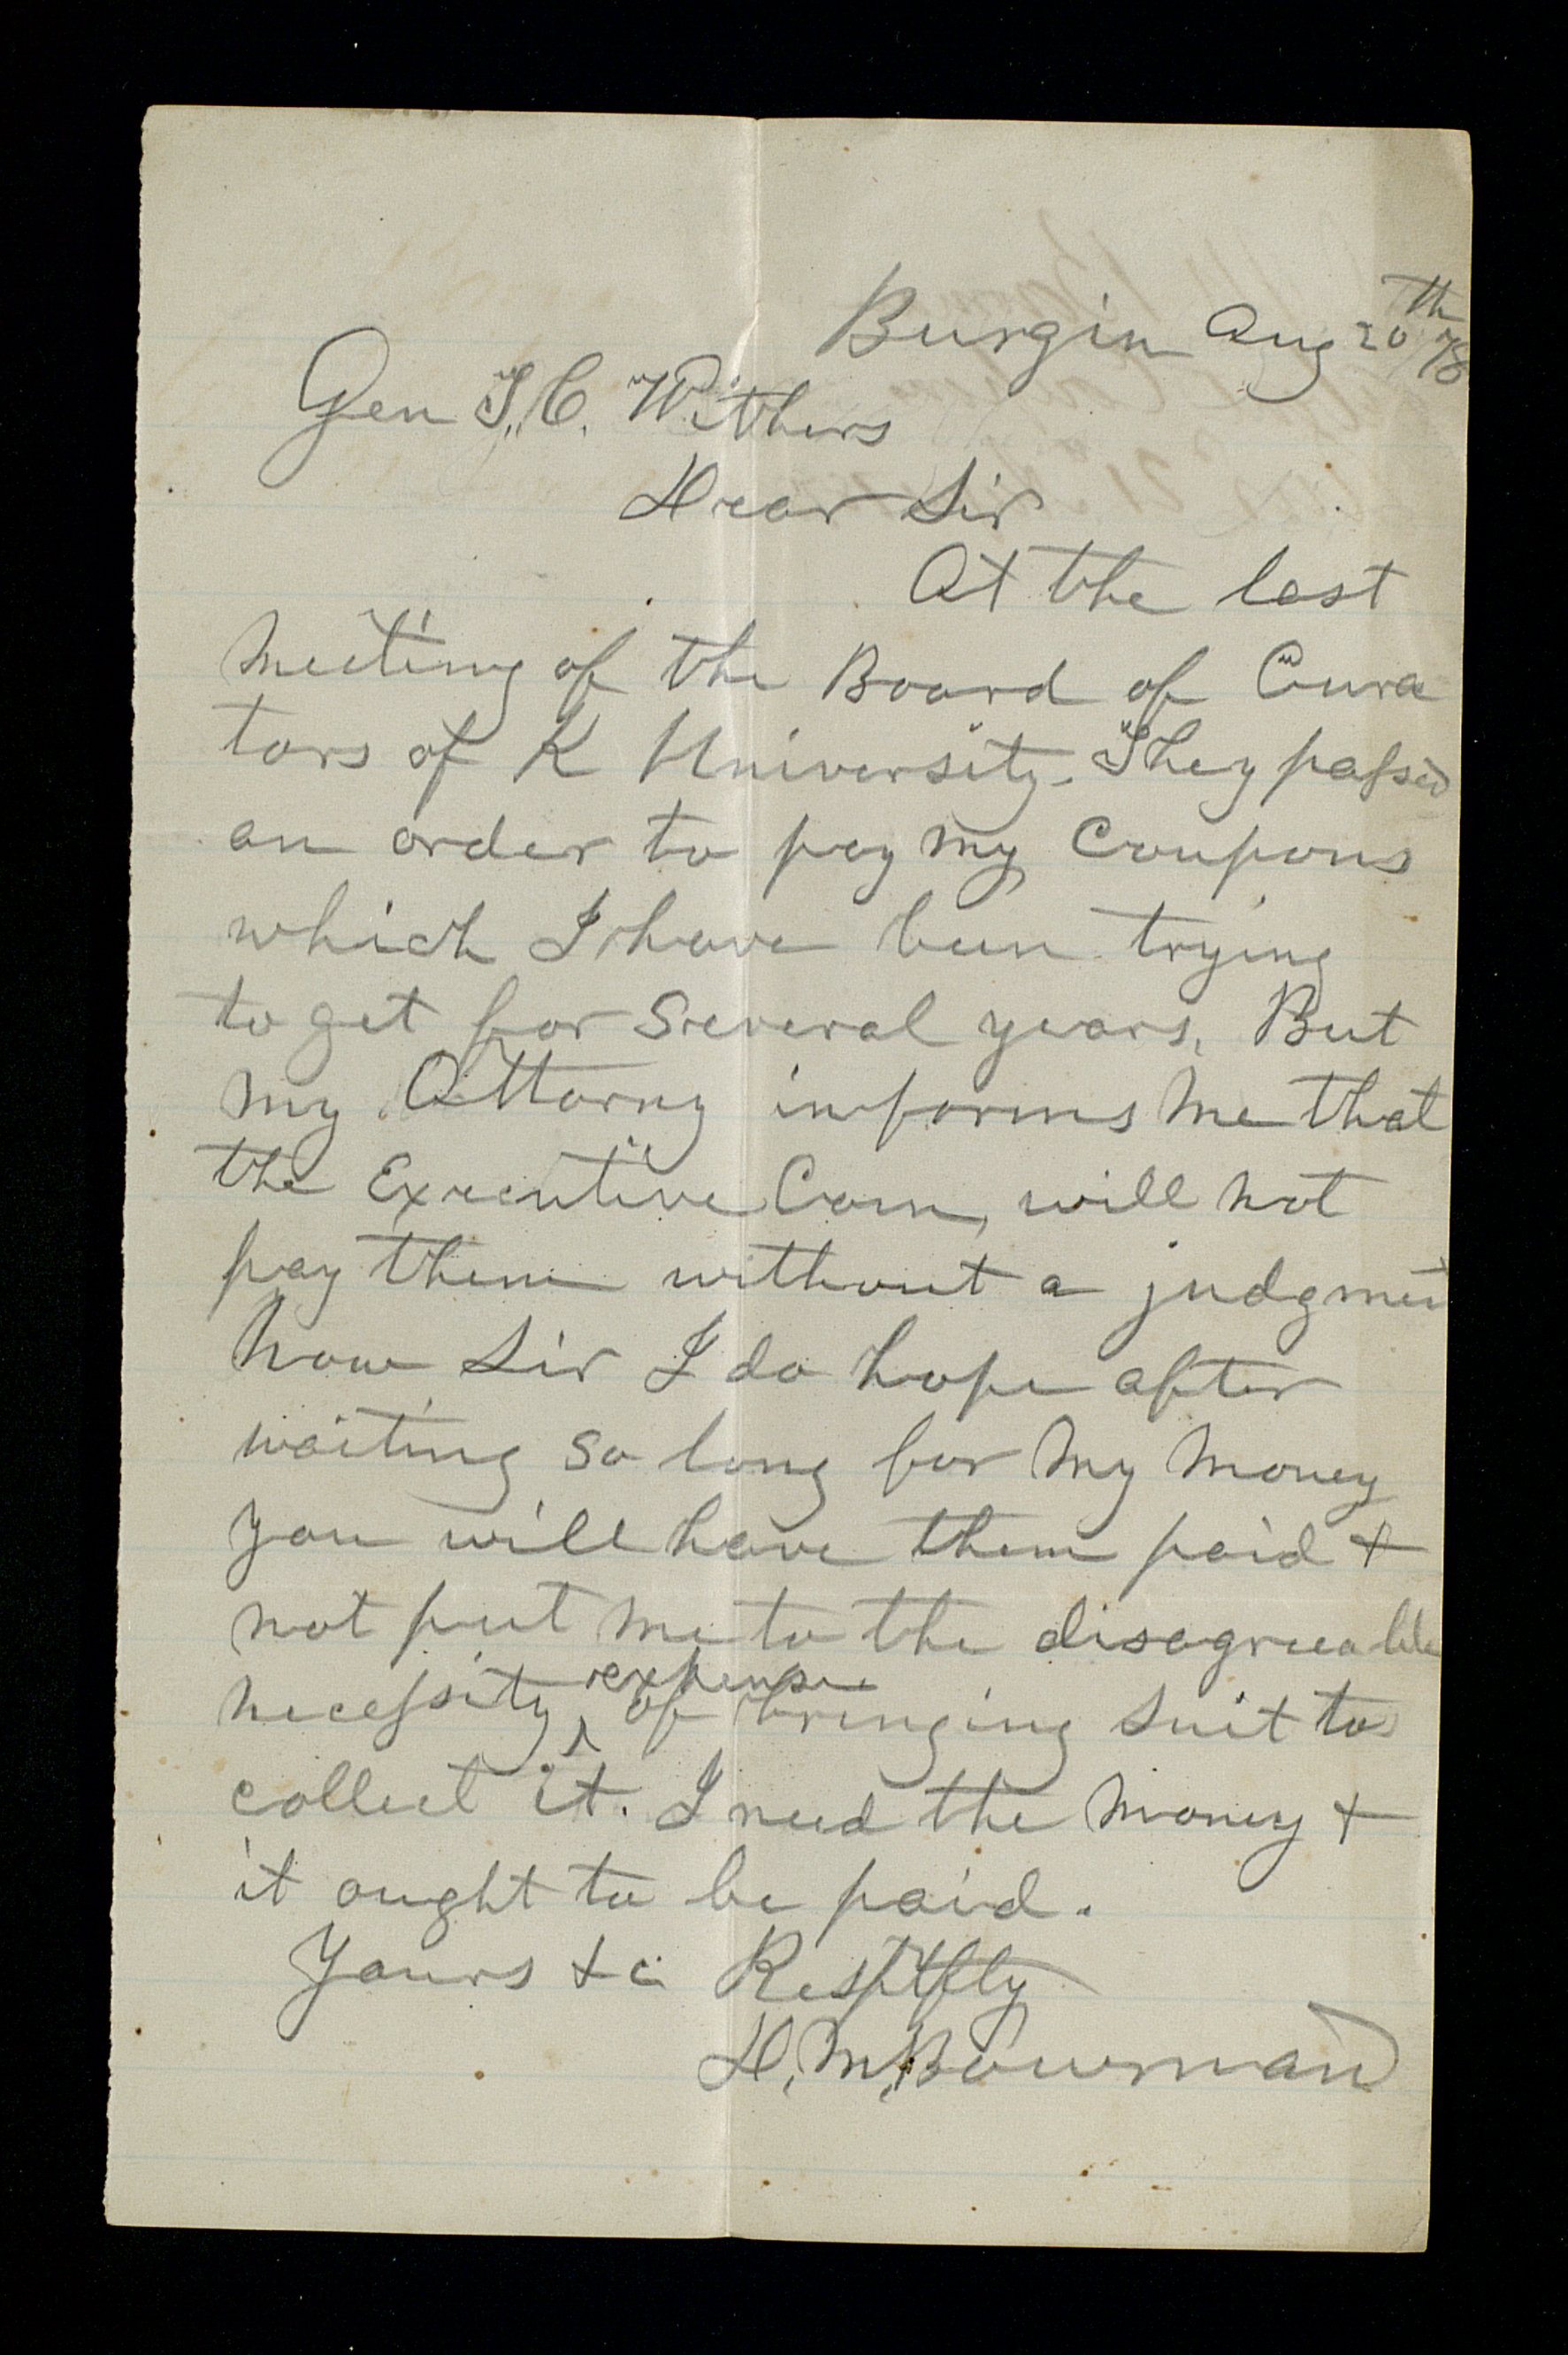 Burgin Aug 20th/78
Gen J. C. Withers
Dear Sir
At the last
meeting of the Board of Cura
tors of K University. They passed
an order to pay my Coupons
which I have been trying
to get for several years, But
my Attorny informs me that
the Executive Com, will not
pay them without a judgment
now Sir I do hope after
waiting so long for my money
you will have them paid &
not put me to the disagreeable
necessity & expense of bringing suit to
collect it. I need the money &
it ought to be paid.
Yours &c Resptfly
D. M. Bowman